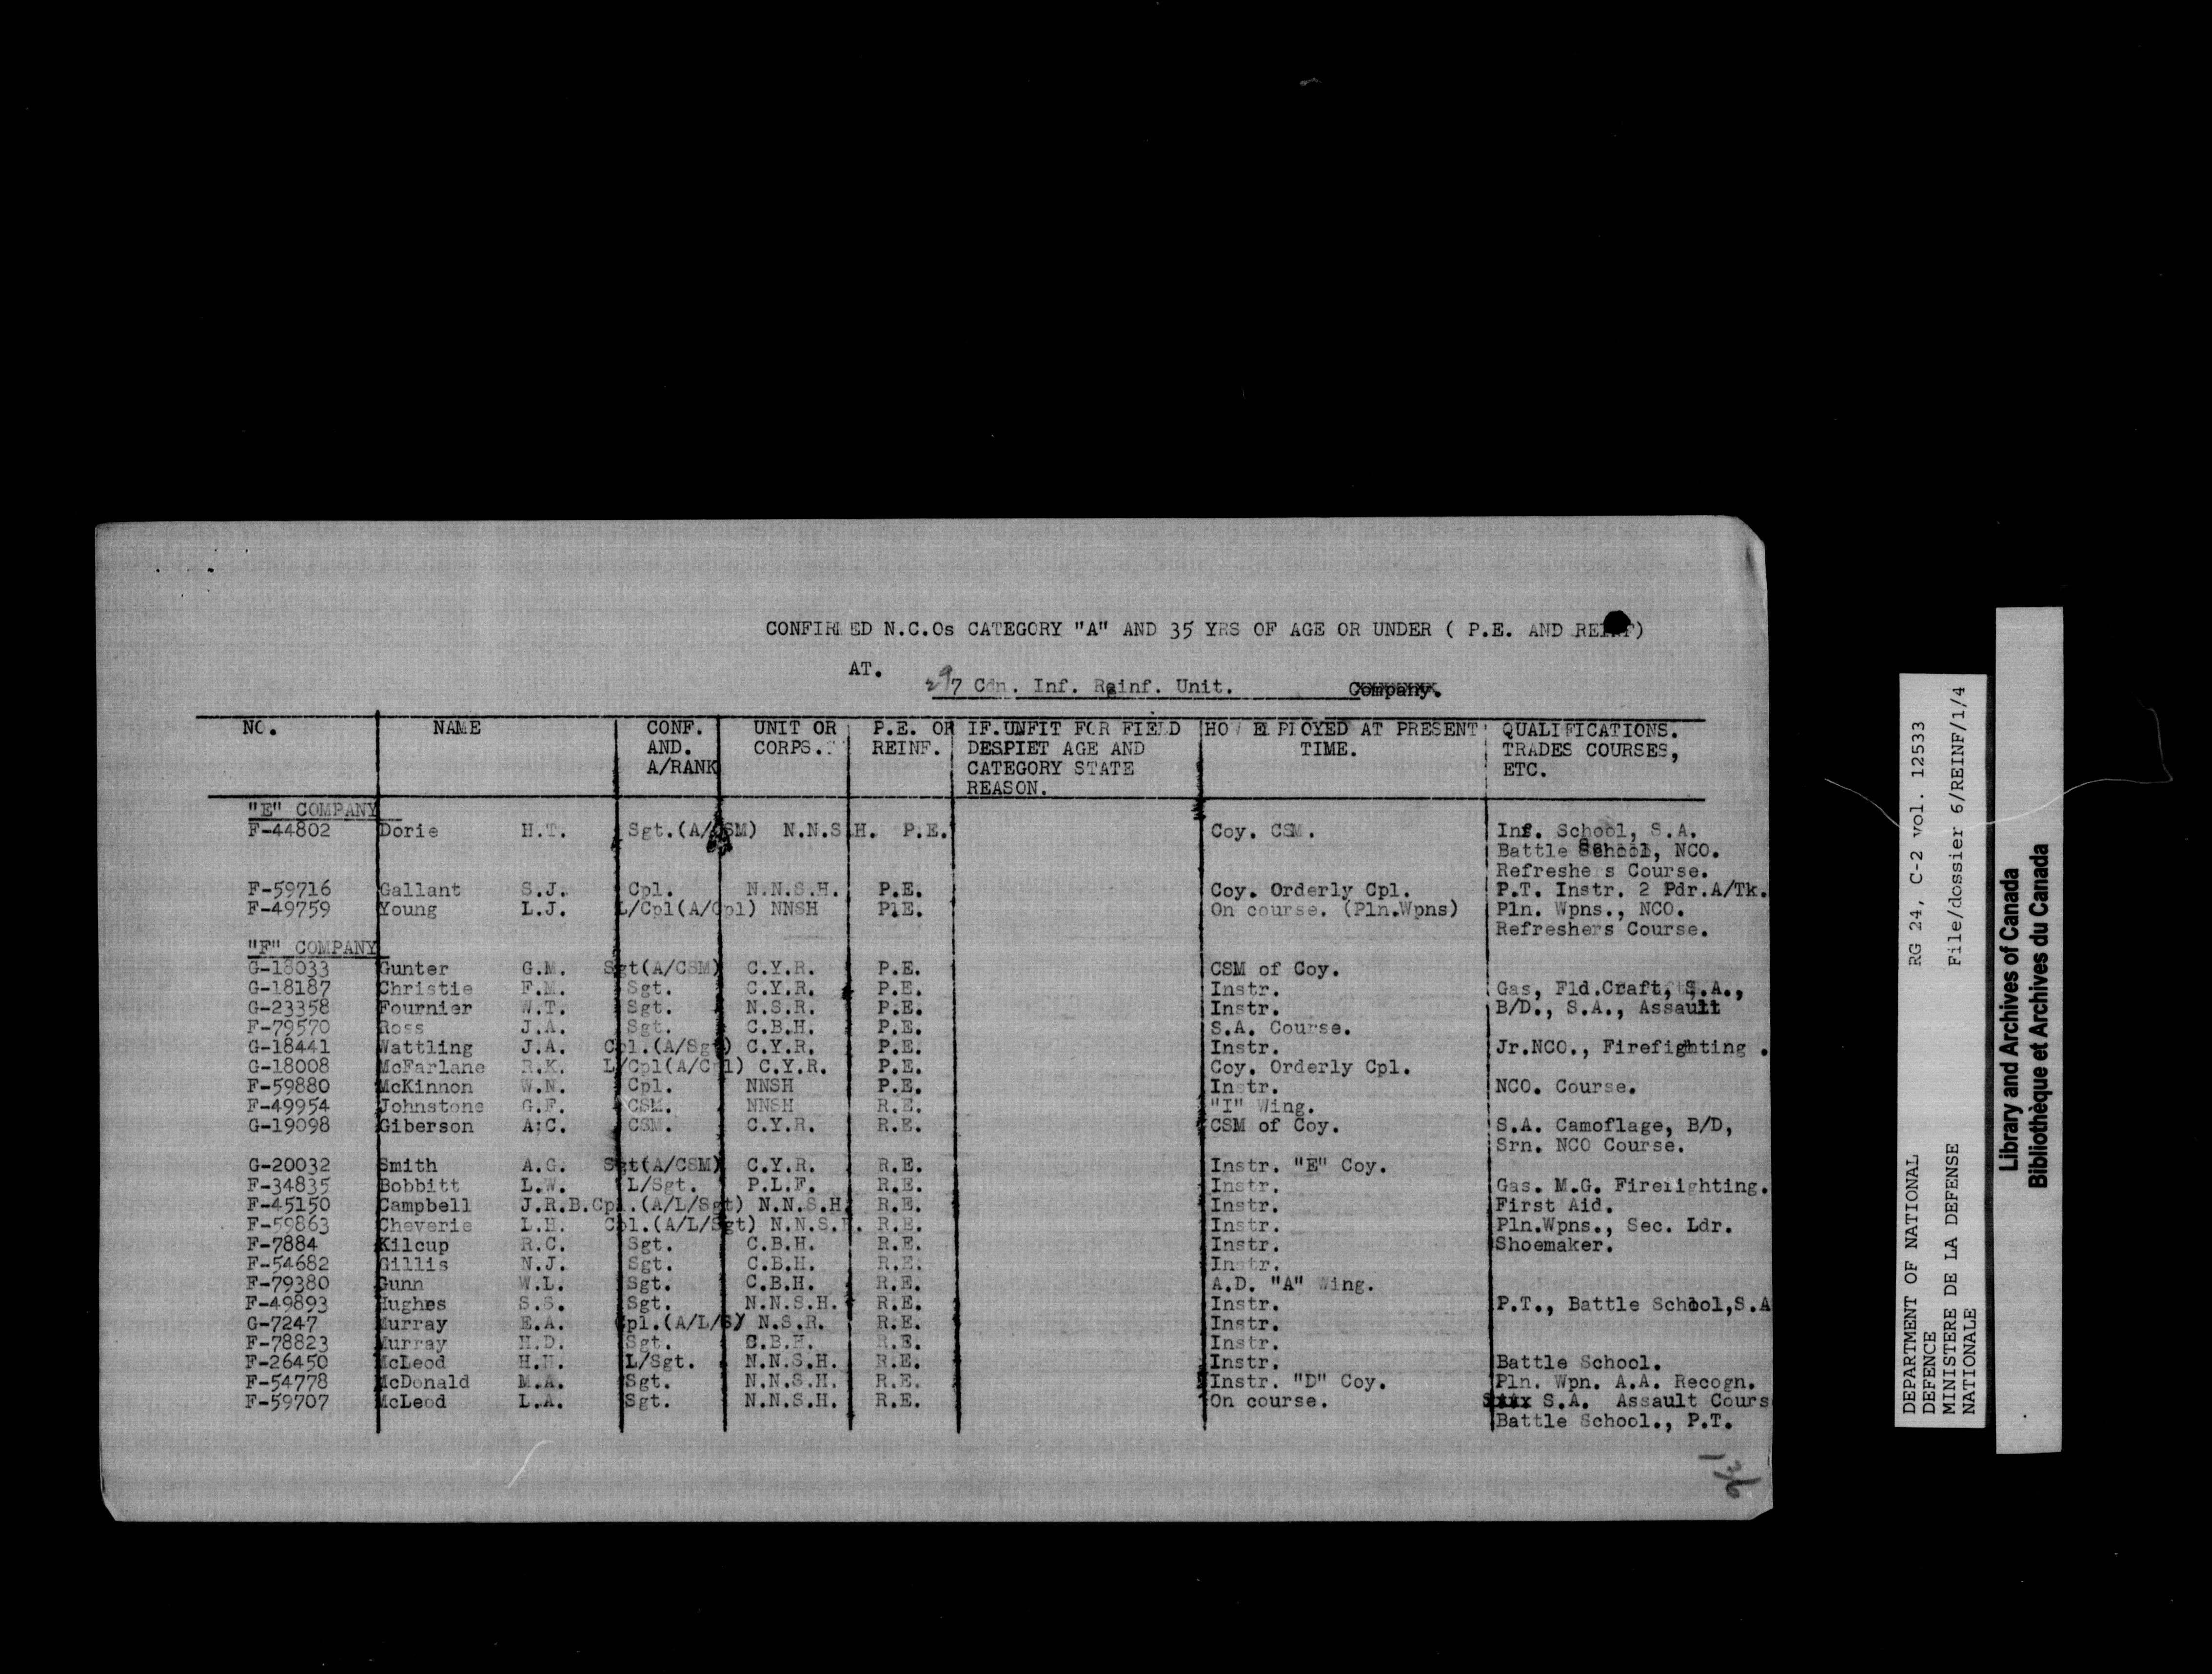 CONFIRMED N.C.Os CATEGORY "A" AND 35 YRS OF AGE OR UNDER ( P.E. AND REINF)
AT.
7 Cdn. Inf. Reinf. Unit. Company.
NO. NAME CONF. AND. A/RANK UNIT OR CORPS. P.E. OR REINF. IF.UNFIT FOR FIELD DESPIET AGE AND CATEGORY STATE REASON. HOW EMPLOYED AT PRESENT TIME. QUALIFICATIONS. TRADES COURSES, ETC.
"E" COMPANY
F-44802 Dorie H.T. Sgt.(A/CSM) N.N.S.H. P.E. Coy. CSM. Inf. School, S.A.
Battle School, NCO.
Refreshers Course.
F-59716 Gallant S.J. Cpl. N.N.S.H. P.E. Coy. Orderly Cpl. P.T. Instr. 2 Pdr.A/Tk.
F-49759 Young L.J. L/Cpl(A/Cpl) NNSH P.E. On course. (Pln.Wpns) Pln. Wpns., NCO.
Refreshers Course.
"F" COMPANY
G-18033 Gunter G.M. Sgt(A/CSM) C.Y.R. P.E. CSM of Coy.
G-18187 Christie F.M. Sgt. C.Y.R. P.E. Instr. Gas, Fld.Craft, S.A.,
G-23358 Fournier W.T. Sgt. N.S.R. P.E. Instr. B/D., S.A., Assault
F-79570 Ross J.A. Sgt. C.B.H. P.E. S.A. Course.
G-18441 Wattling J.A. Cpl.(A/Sgt) C.Y.R. P.E. Instr. Jr.NCO., Firefighting .
G-18008 McFarlane R.K. L/Cpl(A/Cpl) C.Y.R. P.E. Coy. Orderly Cpl.
F-59880 McKinnon W.N. Cpl. NNSH P.E. Instr. NCO. Course.
F-49954 Johnstone G.F. CSM. NNSH R.E. "I" Wing.
G-19098 Giberson A.C. CSM. C.Y.R. R.E. CSM of Coy. S.A. Camoflage, B/D,
Srn. NCO Course.
G-20032 Smith A.G. Sgt(A/CSM) C.Y.R. R.E. Instr. "E" Coy.
F-34835 Bobbitt L.W. L/Sgt. P.L.F. R.E. Instr. Gas. M.G. Firefighting.
F-45150 Campbell J.R.B. Cpl.(A/L/Sgt) N.N.S.H. R.E. Instr. First Aid.
F-59863 Cheverie L.H. Cpl.(A/L/Sgt) N.N.S.H. R.E. Instr. Pln.Wpns., Sec. Ldr.
F-7884 Kilcup R.C. Sgt. C.B.H. R.E. Instr. Shoemaker.
F-54682 Gillis N.J. Sgt. C.B.H. R.E. Instr.
F-79380 Gunn W.L. Sgt. C.B.H. R.E. A.D. "A" Wing.
F-49893 Hughes S.S. Sgt. N.N.S.H. R.E. Instr. P.T., Battle School,S.A
G-7247 Murray E.A. Cpl.(A/L/S) N.S.R. R.E. Instr.
F-78823 Murray H.D. Sgt. C.B.H. R.E. Instr.
F-26450 McLeod H.H. L/Sgt. N.N.S.H. R.E. Instr. Battle School.
F-54778 McDonald M.A. Sgt. N.N.S.H. R.E. Instr. "D" Coy. Pln. Wpn. A.A. Recogn.
F-59707 McLeod L.A. Sgt. N.N.S.H. R.E. On course. S.A. Assault Cours
Battle School., P.T.
DEPARTMENT OF NATIONAL DEFENCE RG 24, C-2 vol. 12533
MINISTERE DE LA DEFENSE NATIONALE File/dossier 6/REINF/1/4
Library and Archives of Canada
Bibliothèque et Archives du Canada